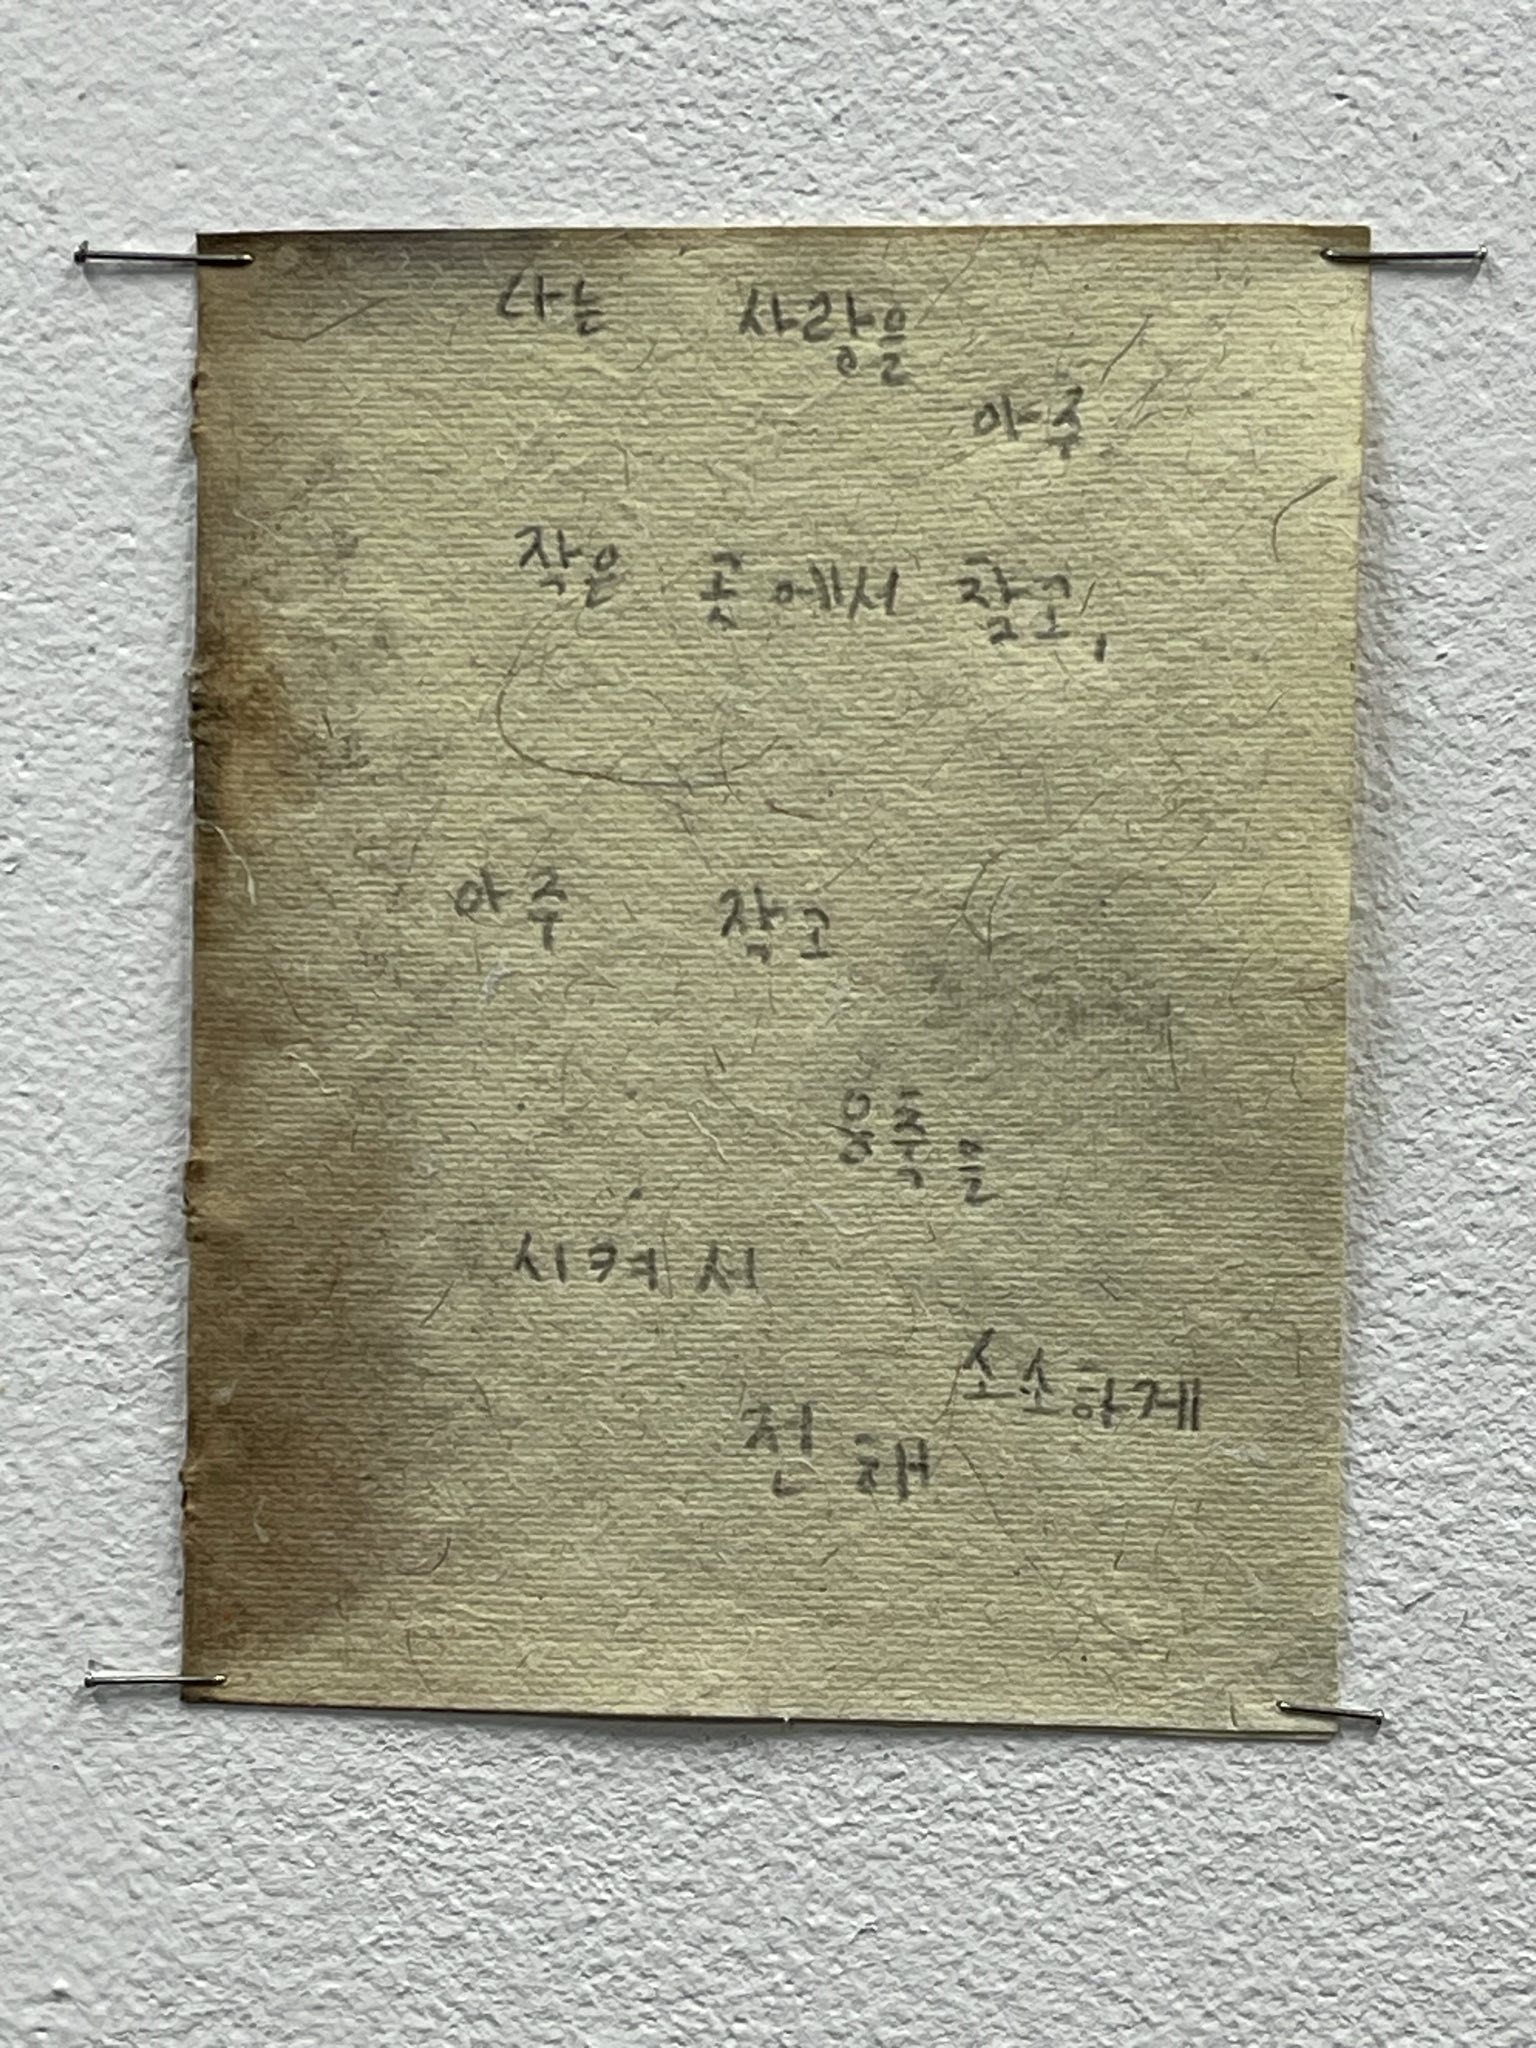 나는 사랑을
아주
작은 곳에서 찾고,
아주 작고
응축을
시켜서
소소하게
전해